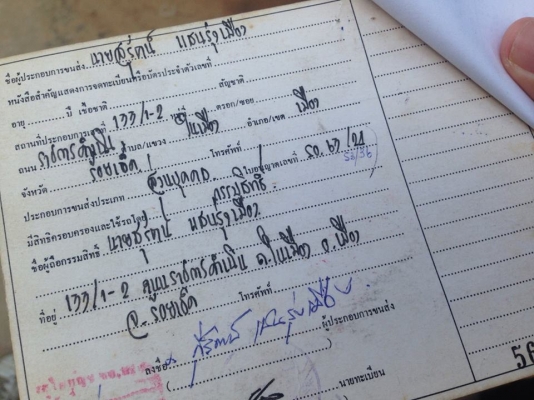 ชื่อผู้ประกอบการขนส่ง นายสุรัตน์ แซ่บรุ่งเมือง
หนังสือสำคัญแสดงการจดทะเบียนหรือบัตรประจำตัวเลขที่
อายุ ปี เชื้อชาติ สัญชาติ
สถานที่ประกอบการเลขที่ 177/1-2 หมู่ที่ ตรอก/ซอย
ถนน ราชการดำเนิน ตำบล/แขวง ในเมือง อำเภอ/เขต เมือง
จังหวัด ร้อยเอ็ด โทรศัพท์
ประกอบการขนส่งประเภท ส่วนบุคคล ใบอนุญาตเลขที่ รอ.
มีสิทธิครอบครองและใช้รถโดย กรรมสิทธิ์
ชื่อผู้ถือกรรมสิทธิ์ นายสุรัตน์
ที่อยู่ 177/1-2 ถนนราชการดำเนิน ต.ในเมือง อ.เมือง
จ. ร้อยเอ็ด โทรศัพท์
ลงชื่อ ผู้ประกอบการขนส่ง
( )
นายทะเบียน
56